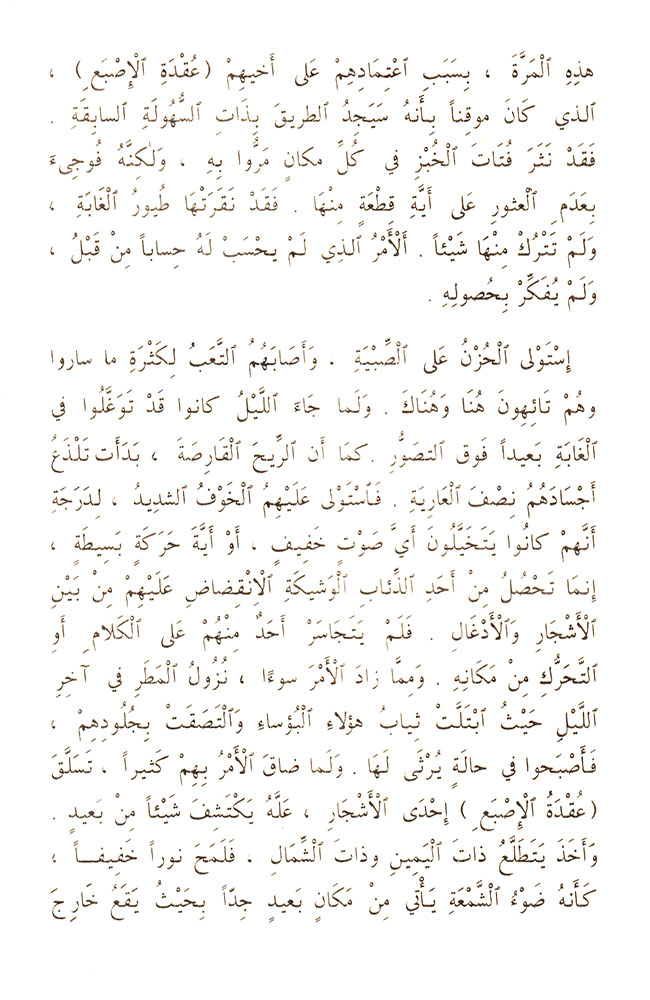 هذِهِ ٱلْمَرَّةَ ، بِسَبَبِ ٱعْتِمَادِهِمْ عَلى أَخيهِمْ (عُقْدَةِ ٱلْإِصْبَعِ) ،
ٱلذي كَانَ موقِناً بِأَنهُ سَيَجِدُ ٱلطريقَ بِذَاتِ ٱلسُّهُولَةِ ٱلسابِقَةِ .
فَقَدْ نَثَرَ فُتَاتَ ٱلْخُبْزِ في كُلِّ مكانٍ مَرُّوا بِهِ ، وَلٰكنَّهُ فُوجِىءَ
بِعَدَمِ ٱلْعثورِ عَلى أَيَّةِ قِطْعَةٍ مِنْهَا . فَقَدْ نَقَرَتْهَا طُيورُ ٱلْغَابَةِ ،
وَلَمْ تَتْرُكْ مِنْهَا شَيْئاً . أَلْأَمْرُ ٱلذي لَمْ يَحْسَبْ لَهُ حِساباً مِنْ قَبْلُ ،
وَلَمْ يُفَكِّرْ بِحُصولِهِ .
إِسْتَوْلى ٱلْحُزْنُ عَلى ٱلْصِّبْيَةِ . وَأَصَابَهُمُ ٱلتَّعَبُ لِكَثْرَةِ ما ساروا
وهُمْ تَائِهونَ هُنَا وَهُنَاكَ . وَلَما جَاءَ ٱللَّيْلُ كانوا قَدْ تَوَغَّلُوا في
ٱلْغَابَةِ بَعيداً فَوق ٱلتصَوُّرِ . كمَا أَن ٱلرِّيحَ ٱلْقَارِصَةَ ، بَدَأَت تَلْذَعُ
أَجْسَادَهُمُ نِصْفَ ٱلْعَارِيَةِ . فَٱسْتَوْلى عَلَيْهِمُ ٱلْخَوْفُ ٱلشديدُ ، لِدَرَجَةِ
أَنَّهمْ كانُوا يَتَخَيَّلُونَ أَيَّ صَوْتٍ خَفيفٍ ، أَوْ أَيَّةَ حَرَكَةٍ بَسِيطَةٍ ،
إِنمَا تَحْصُلُ مِنْ أَحَدِ ٱلذِّئابِ ٱلْوَشيكَةِ ٱلْاِنْقِضاضِ عَلَيْهِمْ مِنْ بَيْنِ
ٱلْأَشْجَارِ وَٱلْأَدْغَالِ . فَلَمْ يَتَجَاسَرْ أَحَدٌ مِنْهُمْ عَلى ٱلْكَلامِ أَوِ
ٱلتَّحَرُّكِ مِنْ مَكَانِهِ . وَمِمَّا زادَ ٱلْأَمْرَ سوءًا ، نُزُولُ ٱلْمَطَرِ في آخِرِ
ٱللَّيْلِ حَيْثُ ٱبْتَلَّتْ ثِيابُ هؤلاءِ ٱلْبُؤساءِ وَٱلْتَصَقَتْ بِجُلُودِهِمْ ،
فَأَصْبَحوا في حالَةٍ يُرْثَى لَهَا . وَلَما ضاقَ ٱلْأَمْرُ بِهِمْ كَثيراً ، تَسَلَّقَ
(عُقْدَةُ ٱلْإِصْبَعِ) إِحْدَى ٱلْأَشْجَارِ ، عَلَّهُ يَكْتَشِفَ شَيْئاً مِنْ بَعيدٍ .
وَأَخَذَ يَتَطَلَّعُ ذاتَ ٱلْيَمينِ وذاتَ ٱلْشِّمَالِ ، فَلَمَحَ نوراً خَفيفــاً ،
كَأَنهُ ضَوْءُ ٱلْشَّمْعَةِ يَأْتي مِنْ مَكَانٍ بَعيدٍ جِدّاً بِحَيْثُ يَقَعُ خَارِجَ